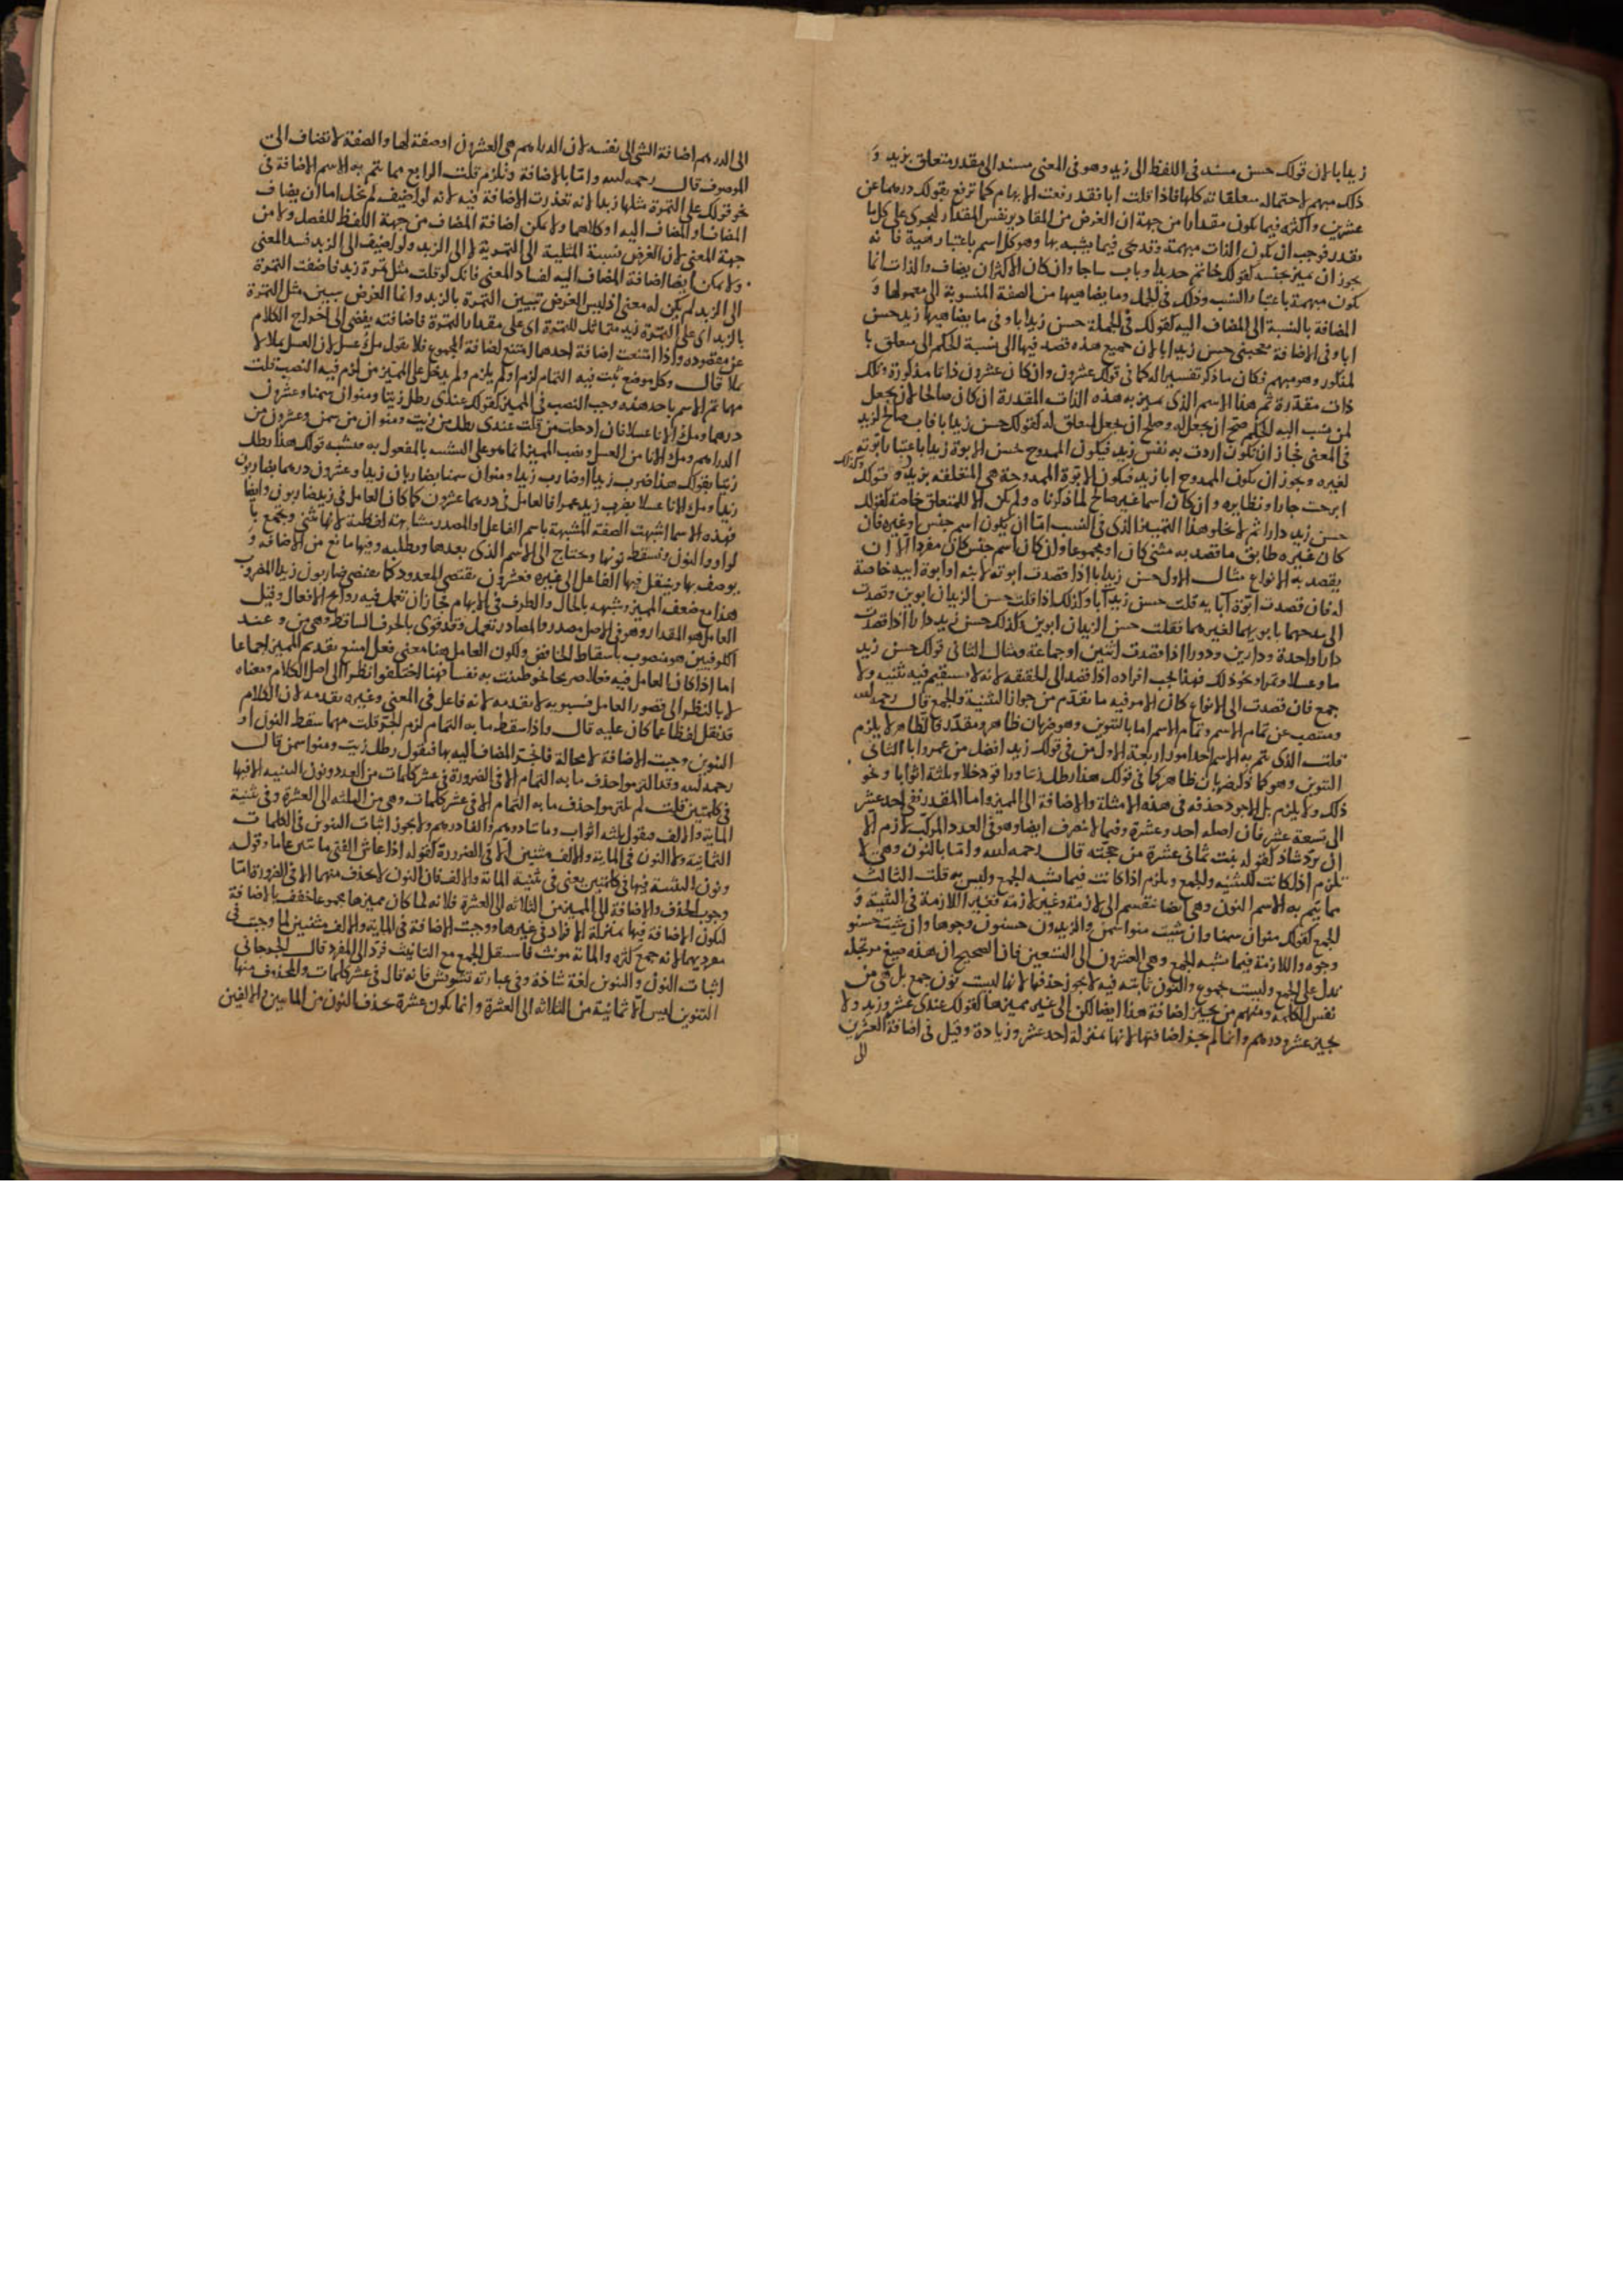 زيد ابا لان قولك حسن مسند فى اللفظ الى زيد وهو فى المعنى مسند الى مقدر متعلق بزيد و
ذلك مبهم لاحتماله متعلقاته كلها فاذا قلت ابا فقد رفعت الابهام كما ترفع بقولك درهما عن
عشرين واكثره فيما يكون مقدارا من جهة ان الغرض من المقادير نفس المقدار
مقدر فوجب ان يكون الذات مبهمة وقد يجى فيما يشبه بها وهو كل اسم باعتبار فانه
يجوز ان يميز بجنسه كقولك خاتم حديدا وباب ساجا وان كان الاكثر ان يضاف والذات انما
تكون مبهمة باعتبار النسب وذلك فى الجمل وما يضاهيها من الصفة المنسوبة الى معمولها و
المضافة بالنسبة الى المضاف اليه كقولك فى الجملة حسن زيد ابا وفى ما يضاهيها زيد حسن
ابا وفى الاضافة يعجبنى حسن زيد ابا لان جميع هذه قصد فيها الى نسبة الحكم الى متعلق با
لمذكور وهو مبهم فكان ما ذكر تفسيرا له كما فى قولك عشرون وان كان عشرون ذاتا مذكورة وتلك
ذات مقدرة ثم هذا الاسم الذى يميز به هذه الذات المقدرة ان كان صالحا لان يجعل
لمن نسب اليه الحكم صح ان يجعل له وصلح ان يجعل لمتعلق له كقولك حسن زيد ابا فاب صالح لزيد
فى المعنى فجاز ان تكون اردت به نفس زيد فيكون الممدوح بحسن الابوة زيدا باعتبار ابوته
لغيره ويجوز ان يكون الممدوح ابا زيد فتكون الابوة الممدوحة هى المتعلقة بزيد وكذلك قولك
ابرحت جارا ونظايره وان كان اسما غير صالح لما ذكرناه ولم يكن الا للمتعلق خاصة كقولك
حسن زيد دارا ثم لا يخلو هذا التمييز الذى فى النسب اما ان يكون اسم جنس او غيره فان
كان غيره طابق ما قصد به مثنى كان او مجموعا وان كان اسم جنس كان مفردا الا ان
يقصد به الانواع مثال الاول حسن زيد ابا اذا قصدت ابوته لابنه او ابوة ابيه خاصة
له فان قصدت ابوة آبايه قلت حسن زيد آبا وكذلك اذا قلت حسن الزيدان ابوين وقصدت
الى مدحهما بابويهما لغيرهما فقلت حسن الزيدان ابوين وكذلك حسن زيد دارا اذا قصدت
دارا واحدة ودارين ودورا اذا قصدت اثنين او جماعة ومثال الثانى قولك حسن زيد
ما وعسلا وتمرا ونحو ذلك فهذا يجب افراده اذا قصد الى الحقيقة لانه لا يستقيم فيه تثنية ولا
جمع فان قصدت الى الانواع كان الامر فيه ما تقدم من جواز التثنية والجمع قال رحمه الله
وينتصب عن تمام الاسم وتمام الاسم اما بالتنوين وهو ضربان ظاهر ومقدر فالظاهر لا يلزم
قلت الذى يتم به الاسم احد امور اربعة الاول من فى قولك زيد افضل من عمرو ابا الثانى
التنوين وهو كما ذكر ضربان ظاهر كما فى قولك هذا رطل زيتا وراقود خلا وثلثة اثوابا ونحو
ذلك ولا يلزم بل الاجود حذفه فى هذه الامثلة والاضافة الى المميز واما المقدر ففى احد عشر
الى تسعة عشر فان اصله احد وعشرة وفيما لا ينصرف ايضا وهو فى العدد المركب لازم الا
ان يرد شاذ كقوله بنت ثمانى عشرة من حجته قال رحمه الله واما بالنون وهى لا
تلزم اذا كانت للتثنية والجمع ويلزم اذا كانت فيما يشبه الجمع وليس به قلت الثالث
مما يتم به الاسم النون وهى ايضا تنقسم الى لازمة وغير لازمة فغير اللازمة فى التثنية و
الجمع كقولك منوان سمنا وان شيت منوا سمن والزيدون حسنون وجوها وان شيت حسنو
وجوه واللازمة فيما يشبه الجمع وهى العشرون الى التسعين فان الصحيح ان هذه صيغ مرتجلة
تدل على الجمع وليست بجموع والنون ثابتة فيه لا يجوز حذفها لانها ليست نون جمع بل هى من
نفس الكلمة ومنهم من يجيز اضافة هذا ايضا لكن الى غير مميزها كقولك عندى عشرو زيد ولا
يجيز عشرو درهم وانما لم يجز اضافتها لانها بمنزلة احد عشر وزيادة وقيل فى اضافة العشرين
الى
الى الدرهم اضافة الشى الى نفسه لان الدراهم هى العشرون او صفة لها والصفة لا تضاف الى
الموصوف قال رحمه الله واما بالاضافة وتلزم قلت الرابع مما يتم به الاسم الاضافة فى
نحو قولك على التمرة مثلها زبدا لانه تعذرت الاضافة فيه لانه لو اضيف لم يخل اما ان يضاف
المضاف او المضاف اليه او كلاهما ولا يمكن اضافة المضاف من جهة اللفظ للفصل ولا من
جهة المعنى لان الغرض نسبة المثلية الى التمرة لا الى الزبد ولو اضيف الى الزبد فسد المعنى
ولا يمكن ايضا اضافة المضاف اليه لفساد المعنى فانك لو قلت مثل تمرة زبد فاضفت التمرة
الى الزبد لم يكن له معنى اذ ليس الغرض تبيين التمرة بالزبد وانما الغرض تبيين مثل التمرة
بالزبد اى على التمرة زبد مماثل للتمرة اى على مقدار التمرة فاضافته يفضى الى اخراج الكلام
عن مقصوده واذا امتنعت اضافة احدهما امتنع اضافة المجموع فلا يقول ملء عسل لان العسل يملا لا
يملا قال وكل موضع ثبت فيه التمام لزم او لم يلزم ولم يدخل على المميز من لزم فيه النصب قلت
مهما تم الاسم باحد هذه وجب النصب فى المميز كقولك عندى رطل زيتا ومنوان سمنا وعشرون
درهما وملء الانا عسلا فان ادخلت من قلت عندى رطل من زيت ومنوان من سمن وعشرون من
الدراهم وملء الانا من العسل ونصب المميز انما هو على التشبيه بالمفعول به فيشبه قولك هذا رطل
زيتا بقولك هذا ضرب زيدا او ضارب زيدا ومنوان سمنا بضاربان زيدا وعشرون درهما بضاربون
زيدا وملء الانا عسلا بضرب زيد عمرا فالعامل فى درهما عشرون كما كان العامل فى زيد ضاربون وايضا
فهذه الاسما اشبهت الصفة المشبهة باسم الفاعل والمصدر مشابهة لفظية لانها تثنى وتجمع با
لواو والنون وتسقط نونها وتحتاج الى الاسم الذى بعدها وتطلبه وفيها مانع من الاضافة و
يوصف بها وينتقل فيها الفاعل الى غيره فعشرون يقتضى المعدود كما يقتضى ضاربون زيدا المضروب
هذا مع ضعف المميز وشبهه بالحال والظرف فى الابهام فجاز ان تعمل فيه روايح الافعال وقيل
العامل هو المقدار وهو فى الاصل مصدر والمصادر تعمل وقد قوى بالحرف الساقط وهى من وعند
الكوفيين هو منصوب باسقاط الخافض ولكون العامل هنا معنى فعل امتنع تقديم المميز اجماعا
اما اذا كان العامل فيه فعلا صريحا نحو طبت به نفسا فهنا اختلفوا نظرا الى اصل الكلام ومعناه
لا بالنظر الى قصور العامل فسيبويه لا يقدمه لانه فاعل فى المعنى وغيره يقدمه لان الكلام
قد نقل لفظا عما كان عليه قال واذا سقط ما به التمام لزم الجر قلت مهما سقط النون او
التنوين وجبت الاضافة لا محالة فانجر المضاف اليه بها فتقول رطل زيت ومنوا سمن قال
رحمه الله وقد التزموا حذف ما به التمام الا فى الضرورة فى عشر كلمات من العدد ونون التثنية فيها
فى كلمتين قلت لم يلتزموا حذف ما به التمام الا فى عشر كلمات وهى من الثلثة الى العشرة وفى تثنية
الماية والالف فيقول ثلثة اثواب ومايتا درهم والفا درهم ولا يجوز اثبات التنوين فى الكلمات
الثمانية ولا النون فى الماية والالف مثنيين الا فى الضرورة كقوله اذا عاش الفتى مايتين عاما وقوله
ونون التثنية فيها فى كلمتين يعنى فى تثنية الماية والالف فان النون لا يحذف منهما الا فى الضرورة اما
وجوب الحذف والاضافة الى المميز من الثلاثة الى العشرة فلانه لما كان مميزها مجموعا خفف بالاضافة
لتكون الاضافة فيها بمنزلة الافراد فى غيرها ووجبت الاضافة فى الماية والالف مثنيين لما وجبت فى
مفرديهما لانه جمع كثرة والماية مونث فاستثقل الجمع مع التانيث فرد الى المفرد قال الجرجانى
اثبات النون والتنوين لغة شاذة وفى عبارته تشويش فانه قال فى عشر كلمات والمحذوف منها
التنوين ليس الا ثمانية من الثلاثة الى العشرة وانما يكون عشرة بحذف النون من المايتين والالفين